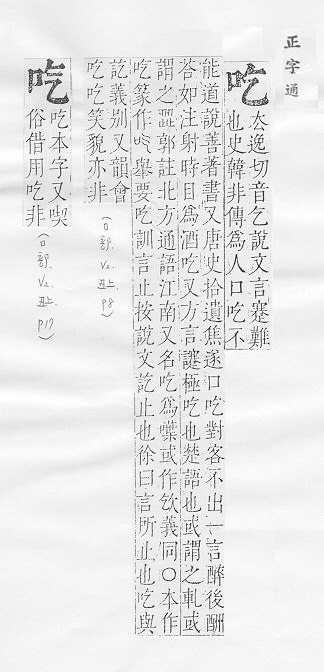 正字通
吃
厺逸切音乞說文言蹇難
也史韓非傳爲人口吃不
能道說善著書又唐史拾遺焦遂口吃對客不出一言醉後酬
荅如注射時目爲酒吃又方言極吃也楚語也或謂之軋或
謂之郭註北方通語江南又名吃爲喋或作義同○本作
吃篆作舉要吃訓言止按說文訖止也徐曰言所止也吃與
訖義别又韻會
吃吃笑貌亦非
(口部. V2. 丑上. P8)
吃本字又喫
俗借用吃非
(口部. V2. 丑上. P17)